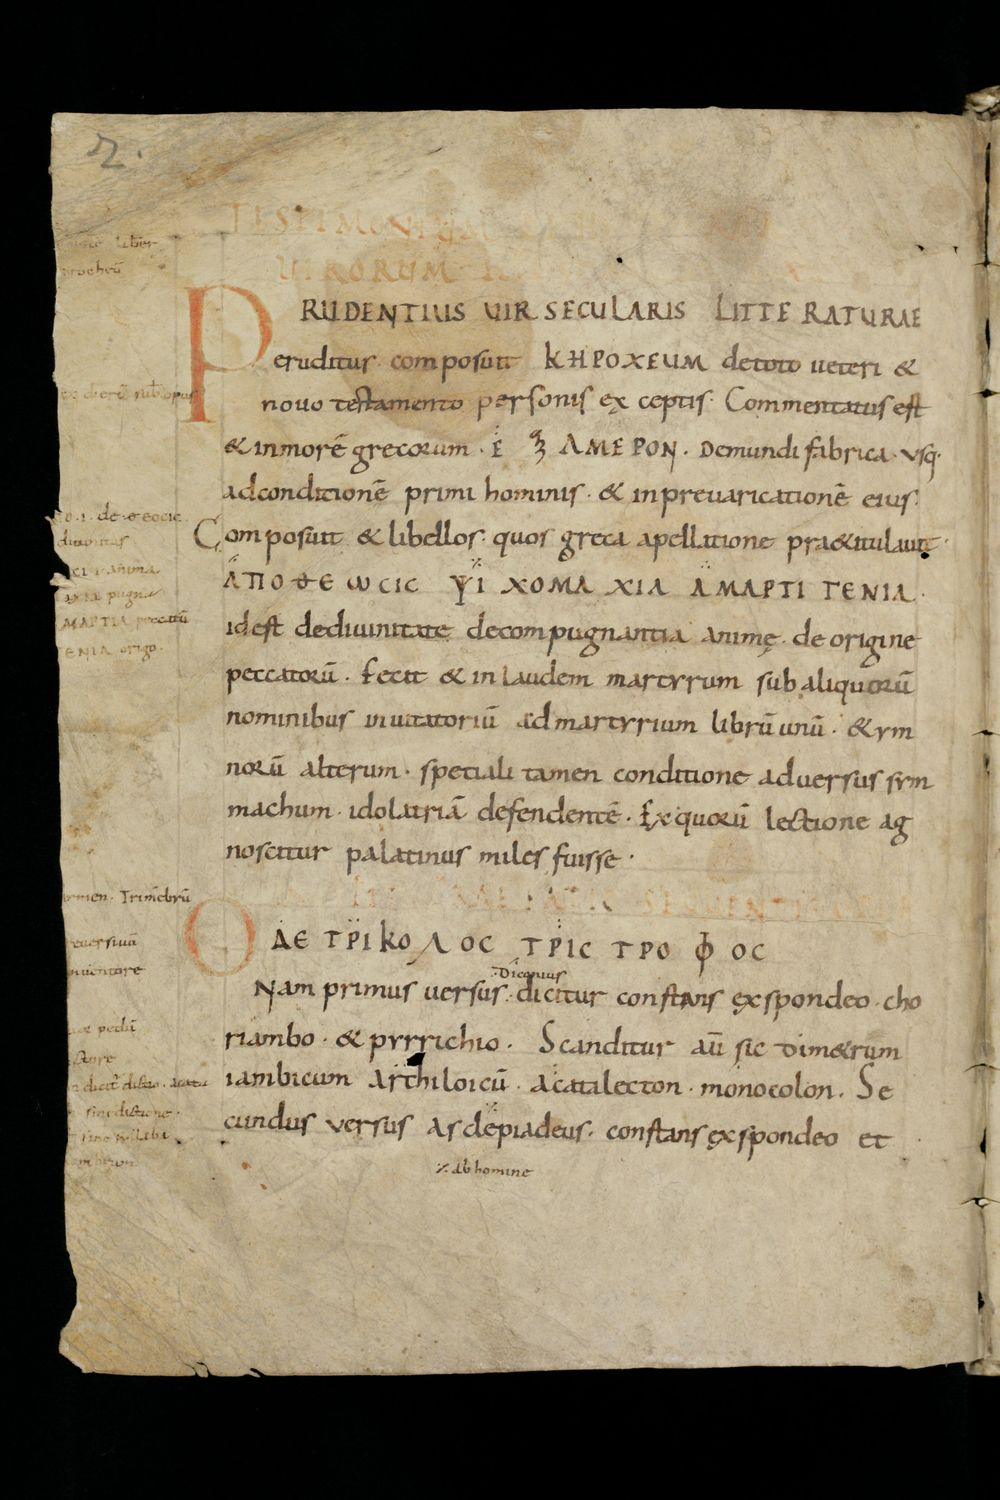 2.
TESTIMONIUM
UIRORUM
PRUDENTIUS UIR SECULARIS LITTERATURAE
eruditus · composuit ΚΗΡΟΧΕUM detoto ueteri &
nouo testamento personis exceptis · Commentatus est
& inmorē grecorum · E ΞΑΜΕRON · Demundi fabrica · usq·
adconditionē primi hominis · & inpreuaricationē eius ·
Composuit & libellos · quos greca apellatione pra&itulauit ·
ΑΠΟΘΕΩCΙC ΨΙΧΟΜΑΧΙΑ ΑΜΑΡΤΙΓΕΝΙΑ ·
id est dediuinitate decompugnantia animę · de origine
peccatorū · Fecit & in laudem martyrum sub aliquorū
nominibus inuitatoriū ad martyrium librū unū · & ym
norū alterum · speciali tamen conditione aduersus sym
machum · idolatriā defendentē · Ex quorū lectione ag
noscitur palatinus miles fuisse ·
SEQUENTIS
ΟΔΕ ΤΡΙΚΟΛΟC ΤΡΙC ΤΡΟΦΟC
Nam primus uersus · dicitur constans exspondeo · cho
riambo · & pyrrichio · Scanditur aū sic dim&rum
iambicum Archiloicū · acatalecton · monocolon · Se
cundus uersus Asclepiadeus · constans exspondeo et
⁒ ab homine
liber
sub opus
de
diuinitas
anima
pugna
ΜΑΡΤΙΑ peccatū
ΓΕΝΙΑ origo ·
Trimēbrū
inuentore
pedū
sine dictione ·
sine syllaba